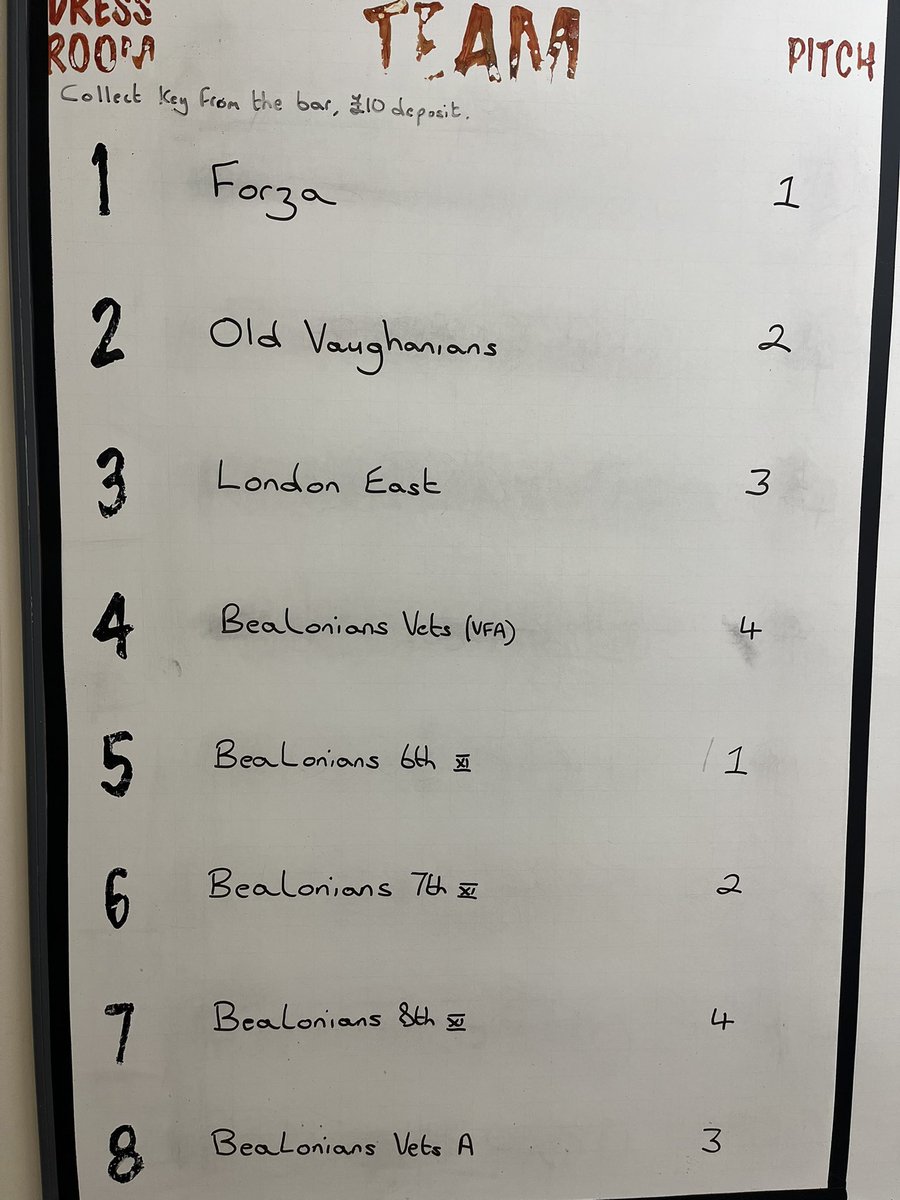 DRESS ROOM TEAM PITCH
Collect Key from the bar, £10 deposit.
1 Forza 1
2 Old Vaughanians 2
3 London East 3
4 Bealonians Vets (VFA) 4
5 Bealonians 6th XI 1
6 Bealonians 7th XI 2
7 Bealonians 8th XI 4
8 Bealonians Vets A 3